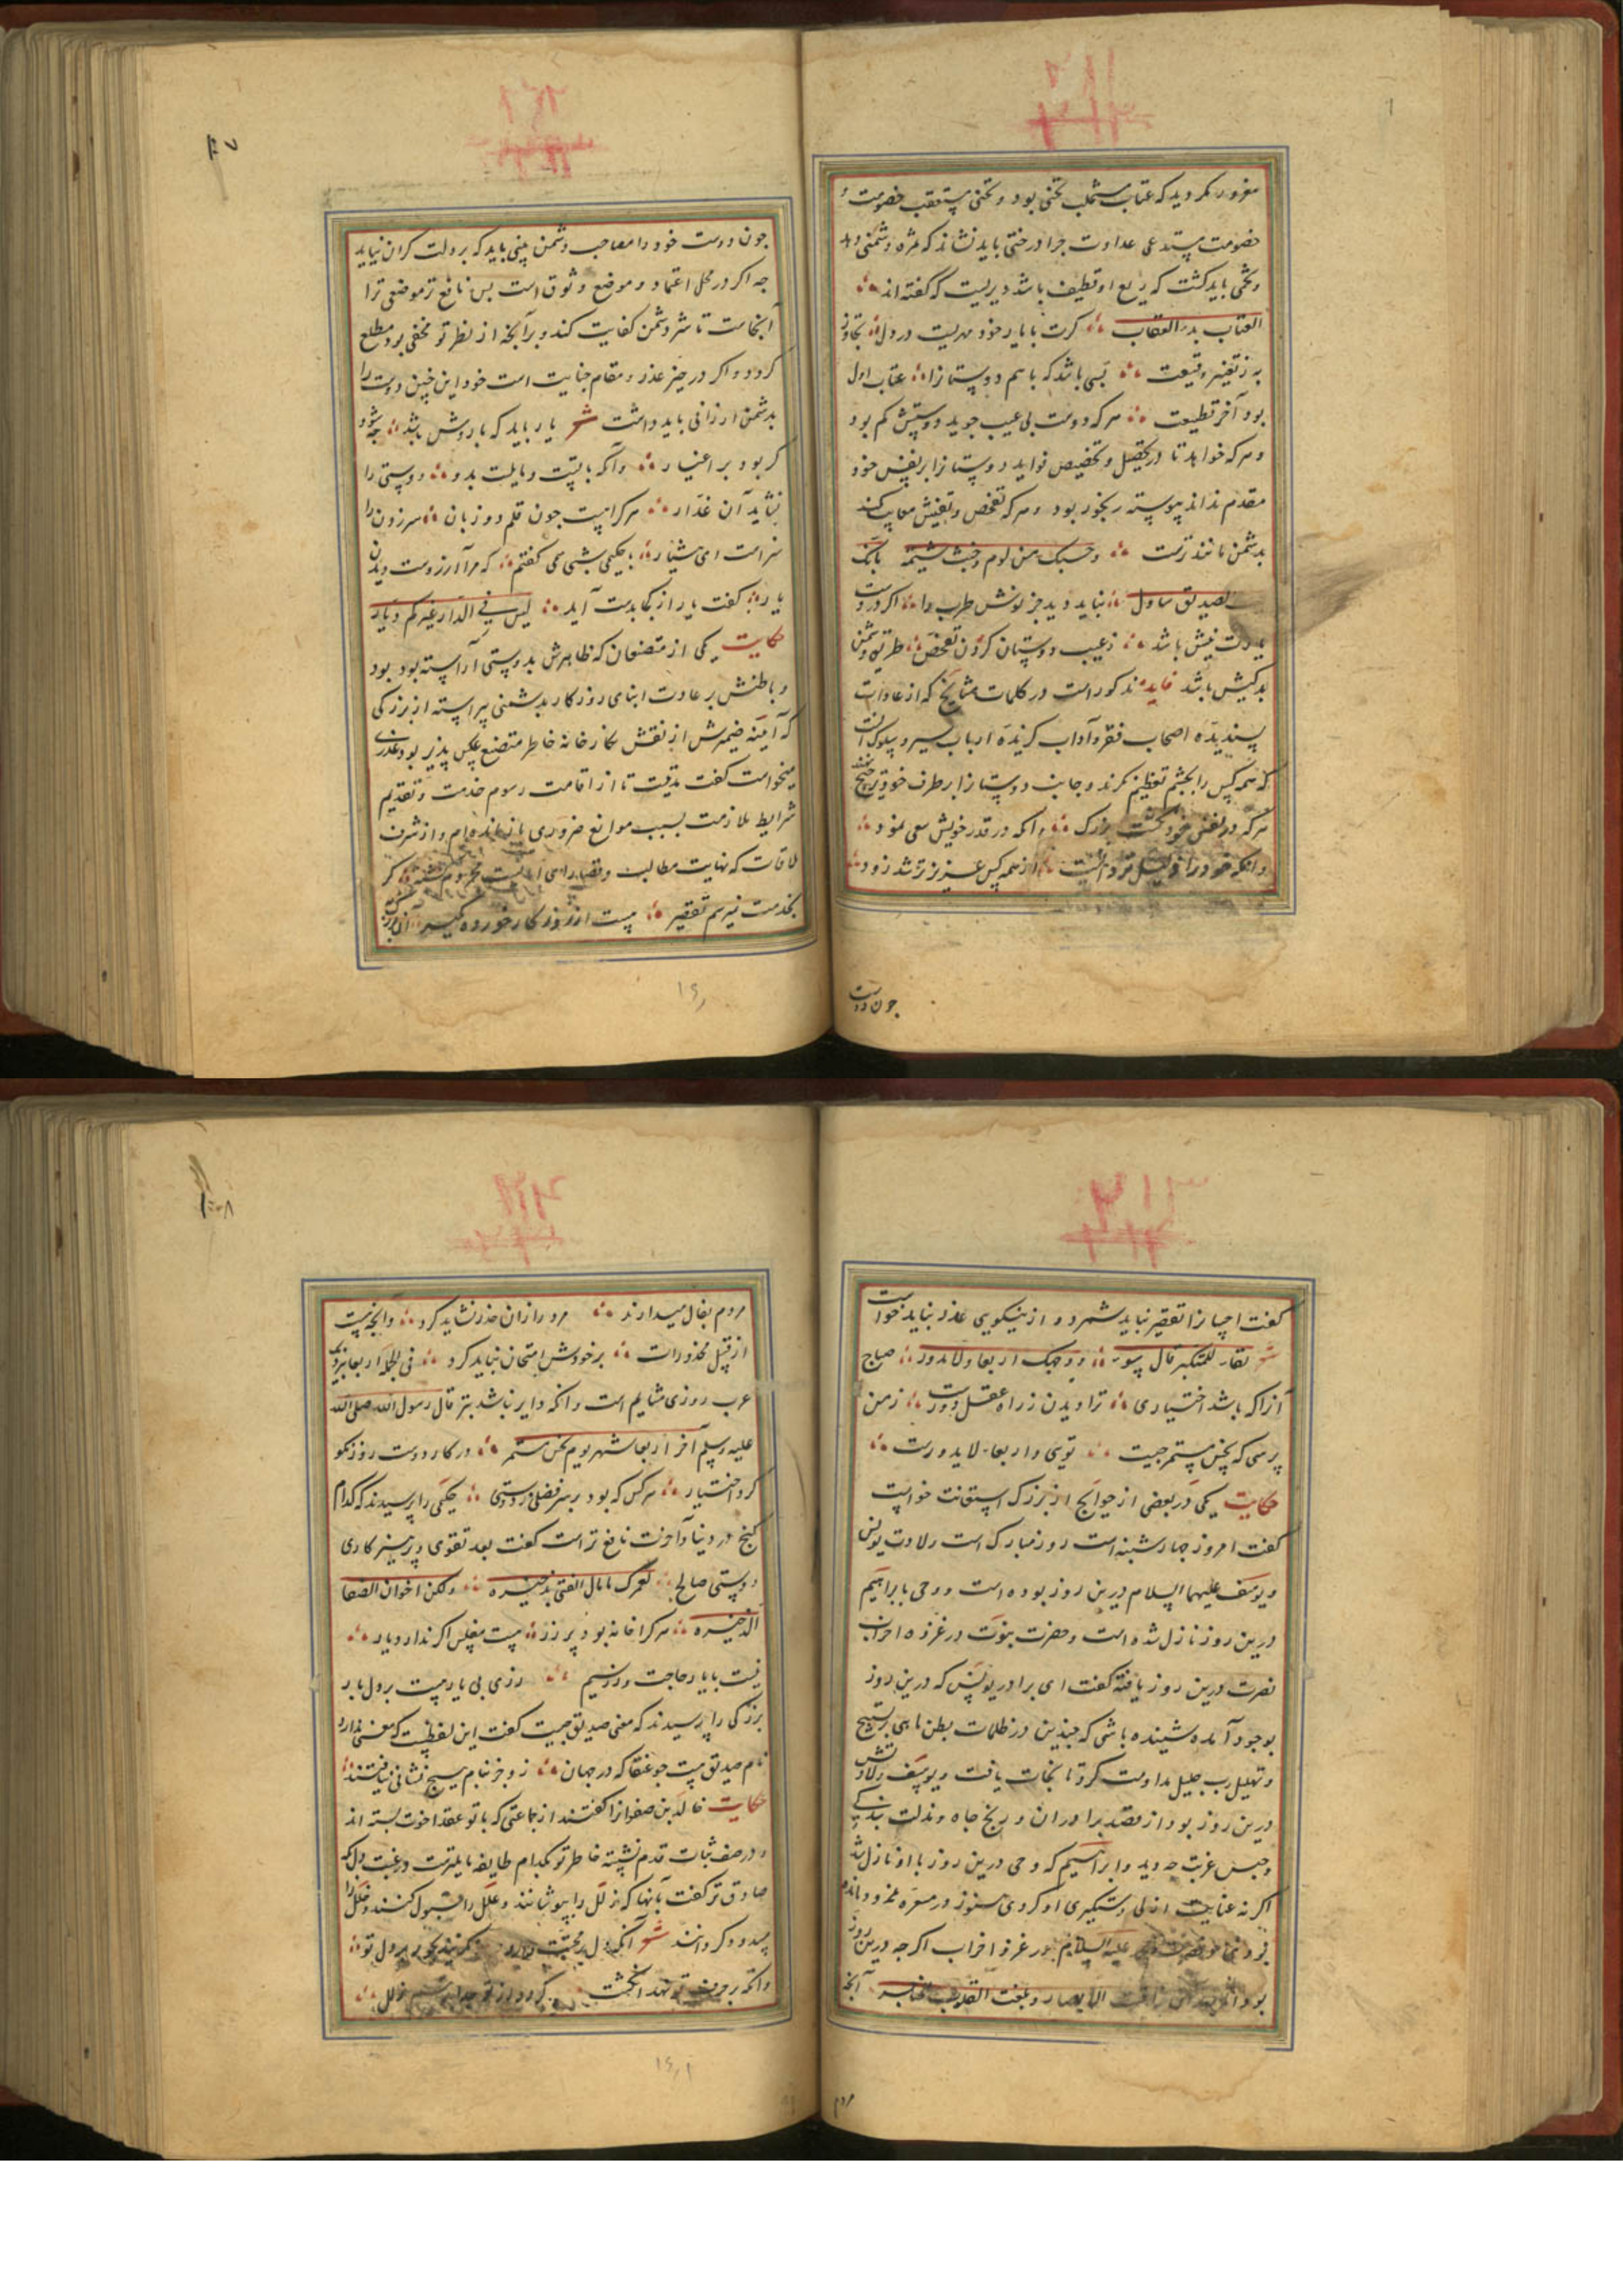 مغرور مکردید که عتاب تجنی بود و تجنی خصومت
خصومت عداوت چرا درختی باید نشاند که ثمره دشمنی دهد
و تخمی باید کشت که ریع او قطیف باشد دیریست که گفته‌اند
العتاب بدء العقاب کرت با یار خود در دل
بسی باشد که با هم دوستانرا عتاب اول
بود آخر قطیعت هر که دوست بی عیب جوید دوستش کم بود
و هر که خواهد تا در تحصیل و تخصیص فواید دوستانرا بر نفس خود
مقدم نداند پیوسته رنجور بود و هر که تفحص و تفتیش معایب کند
بدشمن مانندترست و حسبک من لوم و خبث شیمة بانک
نباید دید جز نوش طرب را اگر در دوست
نیش باشد ز عیب دوستان کردن تفحص طریق دشمن
بدکیش باشد فایده مذکور است در کلمات مشایخ که از عادات
پسندیده اصحاب فقر و آداب گزیده ارباب سیر و سلوک آنست
که همه کس را بچشم تعظیم نکرند و جانب دوستانرا بر طرف خود ترجیح نهند
هر که در نفس خود بزرک وانکه در قدر خویش سعی نمود
وانکه خود را از همه کس عزیزتر شد زود
جون دوست
جون دوست خود را مصاحب دشمن بینی باید که بر دلت کران نیاید
جه اگر در محل اعتماد و موضع وثوق است بس نافع‌تر موضعی ترا
آنجاست تا شر دشمن کفایت کند و برآنجه از نظر تو مخفی بود مطلع
کردد و اگر در حیز عذر و مقام خیانت است خود این چنین دوست را
بدشمن ارزانی باید داشت شعر یار باید که یار وش باشد
کر بود بر اغیار وآنکه با تست و مایلست بدو دوستی را
نشاید آن غدار هر کرا هست جون قلم دو زبان سر زدن را
سزاست ای هشیار با حکیمی شبی همی گفتم که مرا آرزوست دیدن
یار گفت یار از کجا بدست آید لیس فی الدار غیرکم دیار
حکایت یکی از متصنعان که ظاهرش بدوستی آراسته بود
و باطنش بر عادت ابنای روزکار بدشمنی پیراسته از بزرکی
که آینه ضمیرش از نقش کارخانه خاطر متصنع عکس پذیر بود عذری
میخواست گفت مدتیست تا از اقامت رسوم خدمت و تقدیم
شرایط ملازمت بسبب موانع ضروری باز مانده‌ام و از شرف
ملاقات که نهایت مطالب و قصارای امانیست محروم کشته کر
بخدمت نمیرسم تقصیر هست از روزکار خورده کیر
کفت احیانرا تقصیر نباید شمرد و از نیکویی عذر نباید خواست
شعر لقاء للمتکبر فال سوء و وجهک اربعاء لا یدور صباح
آنرا که باشد اختیاری ترا دیدن ز راه عقل دورست ز من
پرسی که نحس مستمر جیست تویی و اربعاء لا یدورست
حکایت یکی در بعضی از حوایج از بزرک استعانت خواست
کفت امروز جهارشنبه است روز مبارک است ولادت یونس
و یوسف علیهما السلام درین روز بوده است و وحی بابراهیم
درین روز نازل شده است و حضرت نبوت در غزوه احزاب
نصرت درین روز یافته کفت ای برادر یونس که درین روز
بوجود آمده شنیده باشی که جندین در ظلمات بطن ماهی بتسبیح
و تهلیل رب جلیل مداومت کرد تا نجات یافت و یوسف ولادتش
درین روز بود از قصد برادران و رنج جاه و مذلت بندکی
و حبس غربت جه دید و ابراهیم که وحی درین روز باو نازل شد
اگر نه عنایت ازلی دستگیری او کردی هنوز در
علیه السلام در غزوه احزاب اکرجه درین روز
بود الابصار و بلغت القلوب الحناجر آنجه
مردم
مردم بفال میدارند مرد را زان حذر نشاید کرد وانچه نیست
از قبیل محذورات بر خودش امتحان نباید کرد فی الجمله اربعا نزدیک
عرب روزی مشایم است وانکه دایر نباشد بتر قال رسول الله صلی الله
علیه و سلم آخر اربعا شهر یوم نحس مستمر در کار دوست روز نکو
کرد اختیار هر کس که بود بر سر فضلی ز دوستی حکیمی را پرسیدند که کدام
کنج در دنیا و آخرت نافع‌تر است کفت بعد تقوی و پرهیزکاری
دوستی صالح لعمرک ما مال الفتی بذخیرة ولکن اخوان الصفا
الذخیرة هر کرا خانه بود پر زر هست مفلس اکر ندارد یار
نیست با یار حاجت زر و سیم رزی بی یار هست بر دل بار
بزرکی را پرسیدند که معنی صدیق جیست کفت این لفظیست که معنی ندارد
نام صدیق هست جو عنقا که در جهان زو جز بنام هیج نشانی نیافتند
حکایت خالد بن صفوانرا کفتند از جماعتی که با تو عقد اخوت بسته اند
و در صف ثبات قدم نشسته خاطر تو بکدام طایفه مایلترست و رغبت دل بکه
صادق‌تر کفت بآنها که زلل را بپوشانند و علل را قبول کنند و خلل را
مسدود کردانند شعر آنکه دل بر محبت
وانکه بر حرف تو نهد انکشت کردد از تو جدا